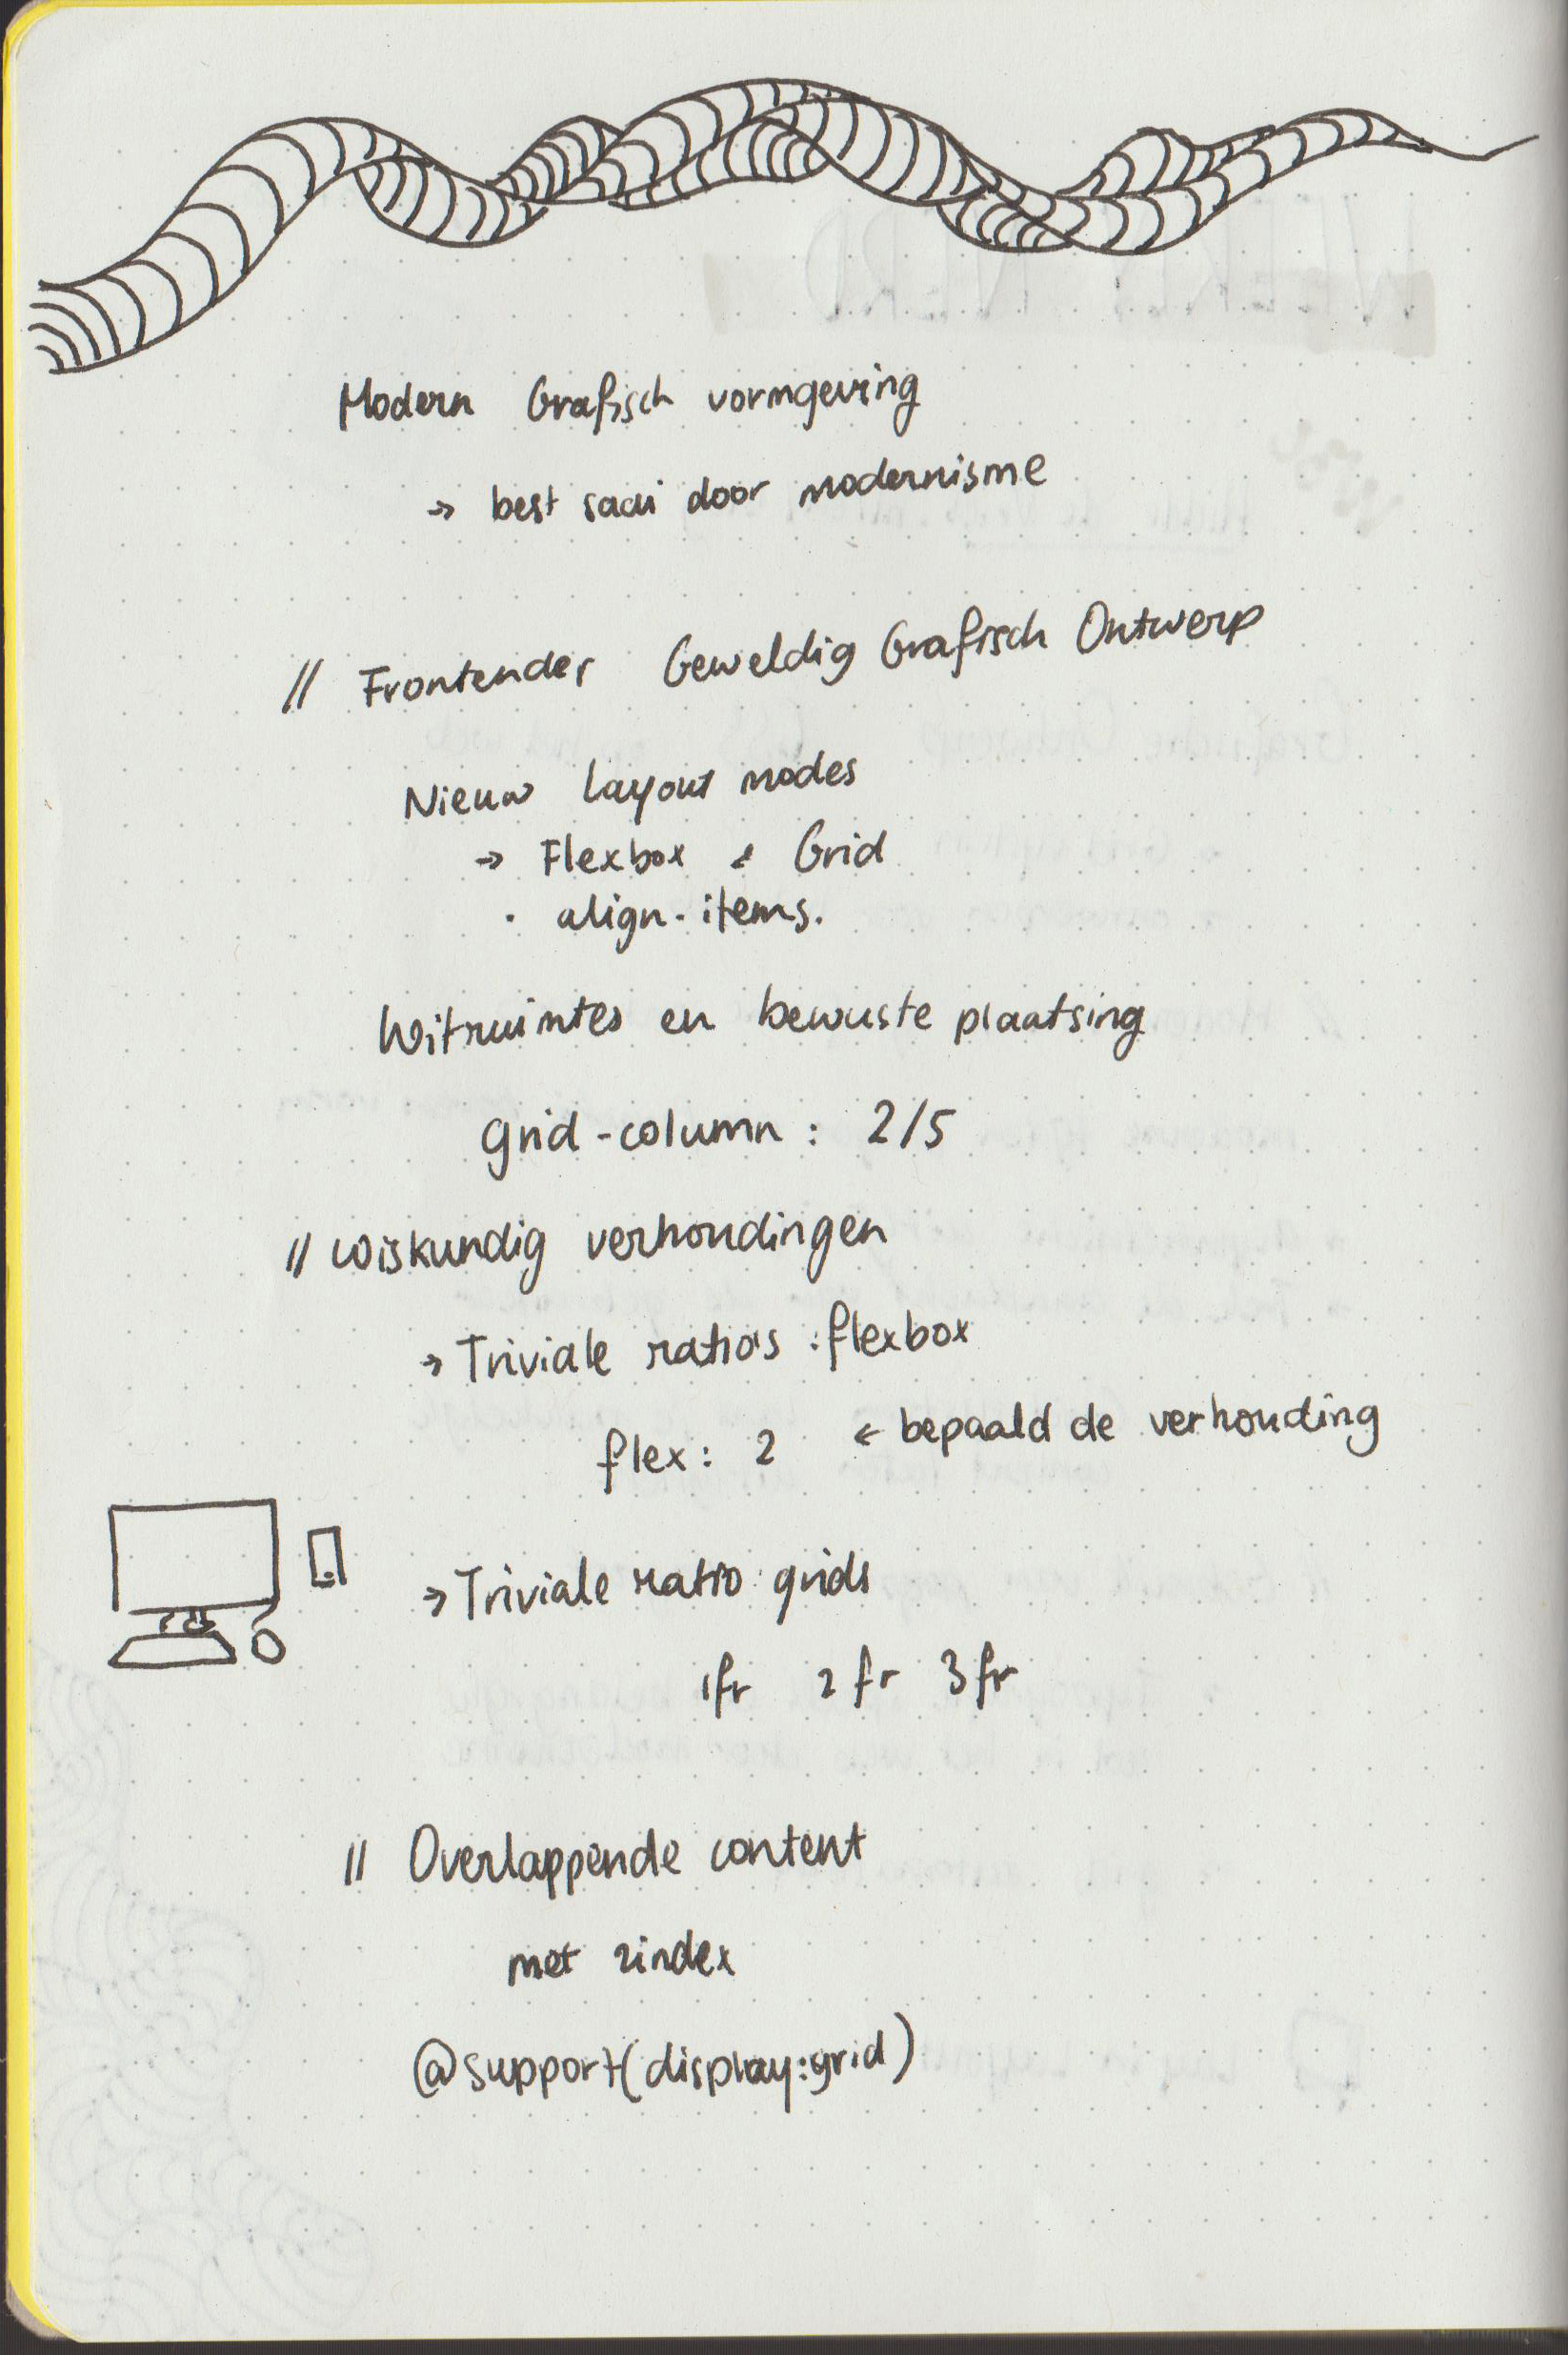 Modern Grafisch vormgeving
→ best saai door modernisme
// Frontender Geweldig Grafisch Ontwerp
Nieuw layout modes
→ Flexbox & Grid
· align-items.
Witruimtes en bewuste plaatsing
grid-column: 2/5
// wiskundig verhoudingen
→ Triviale ratio's : flexbox
flex: 2 ← bepaald de verhouding
→ Triviale ratio: grids
1fr 2fr 3fr
// Overlappende content
met zindex
@support(display:grid)